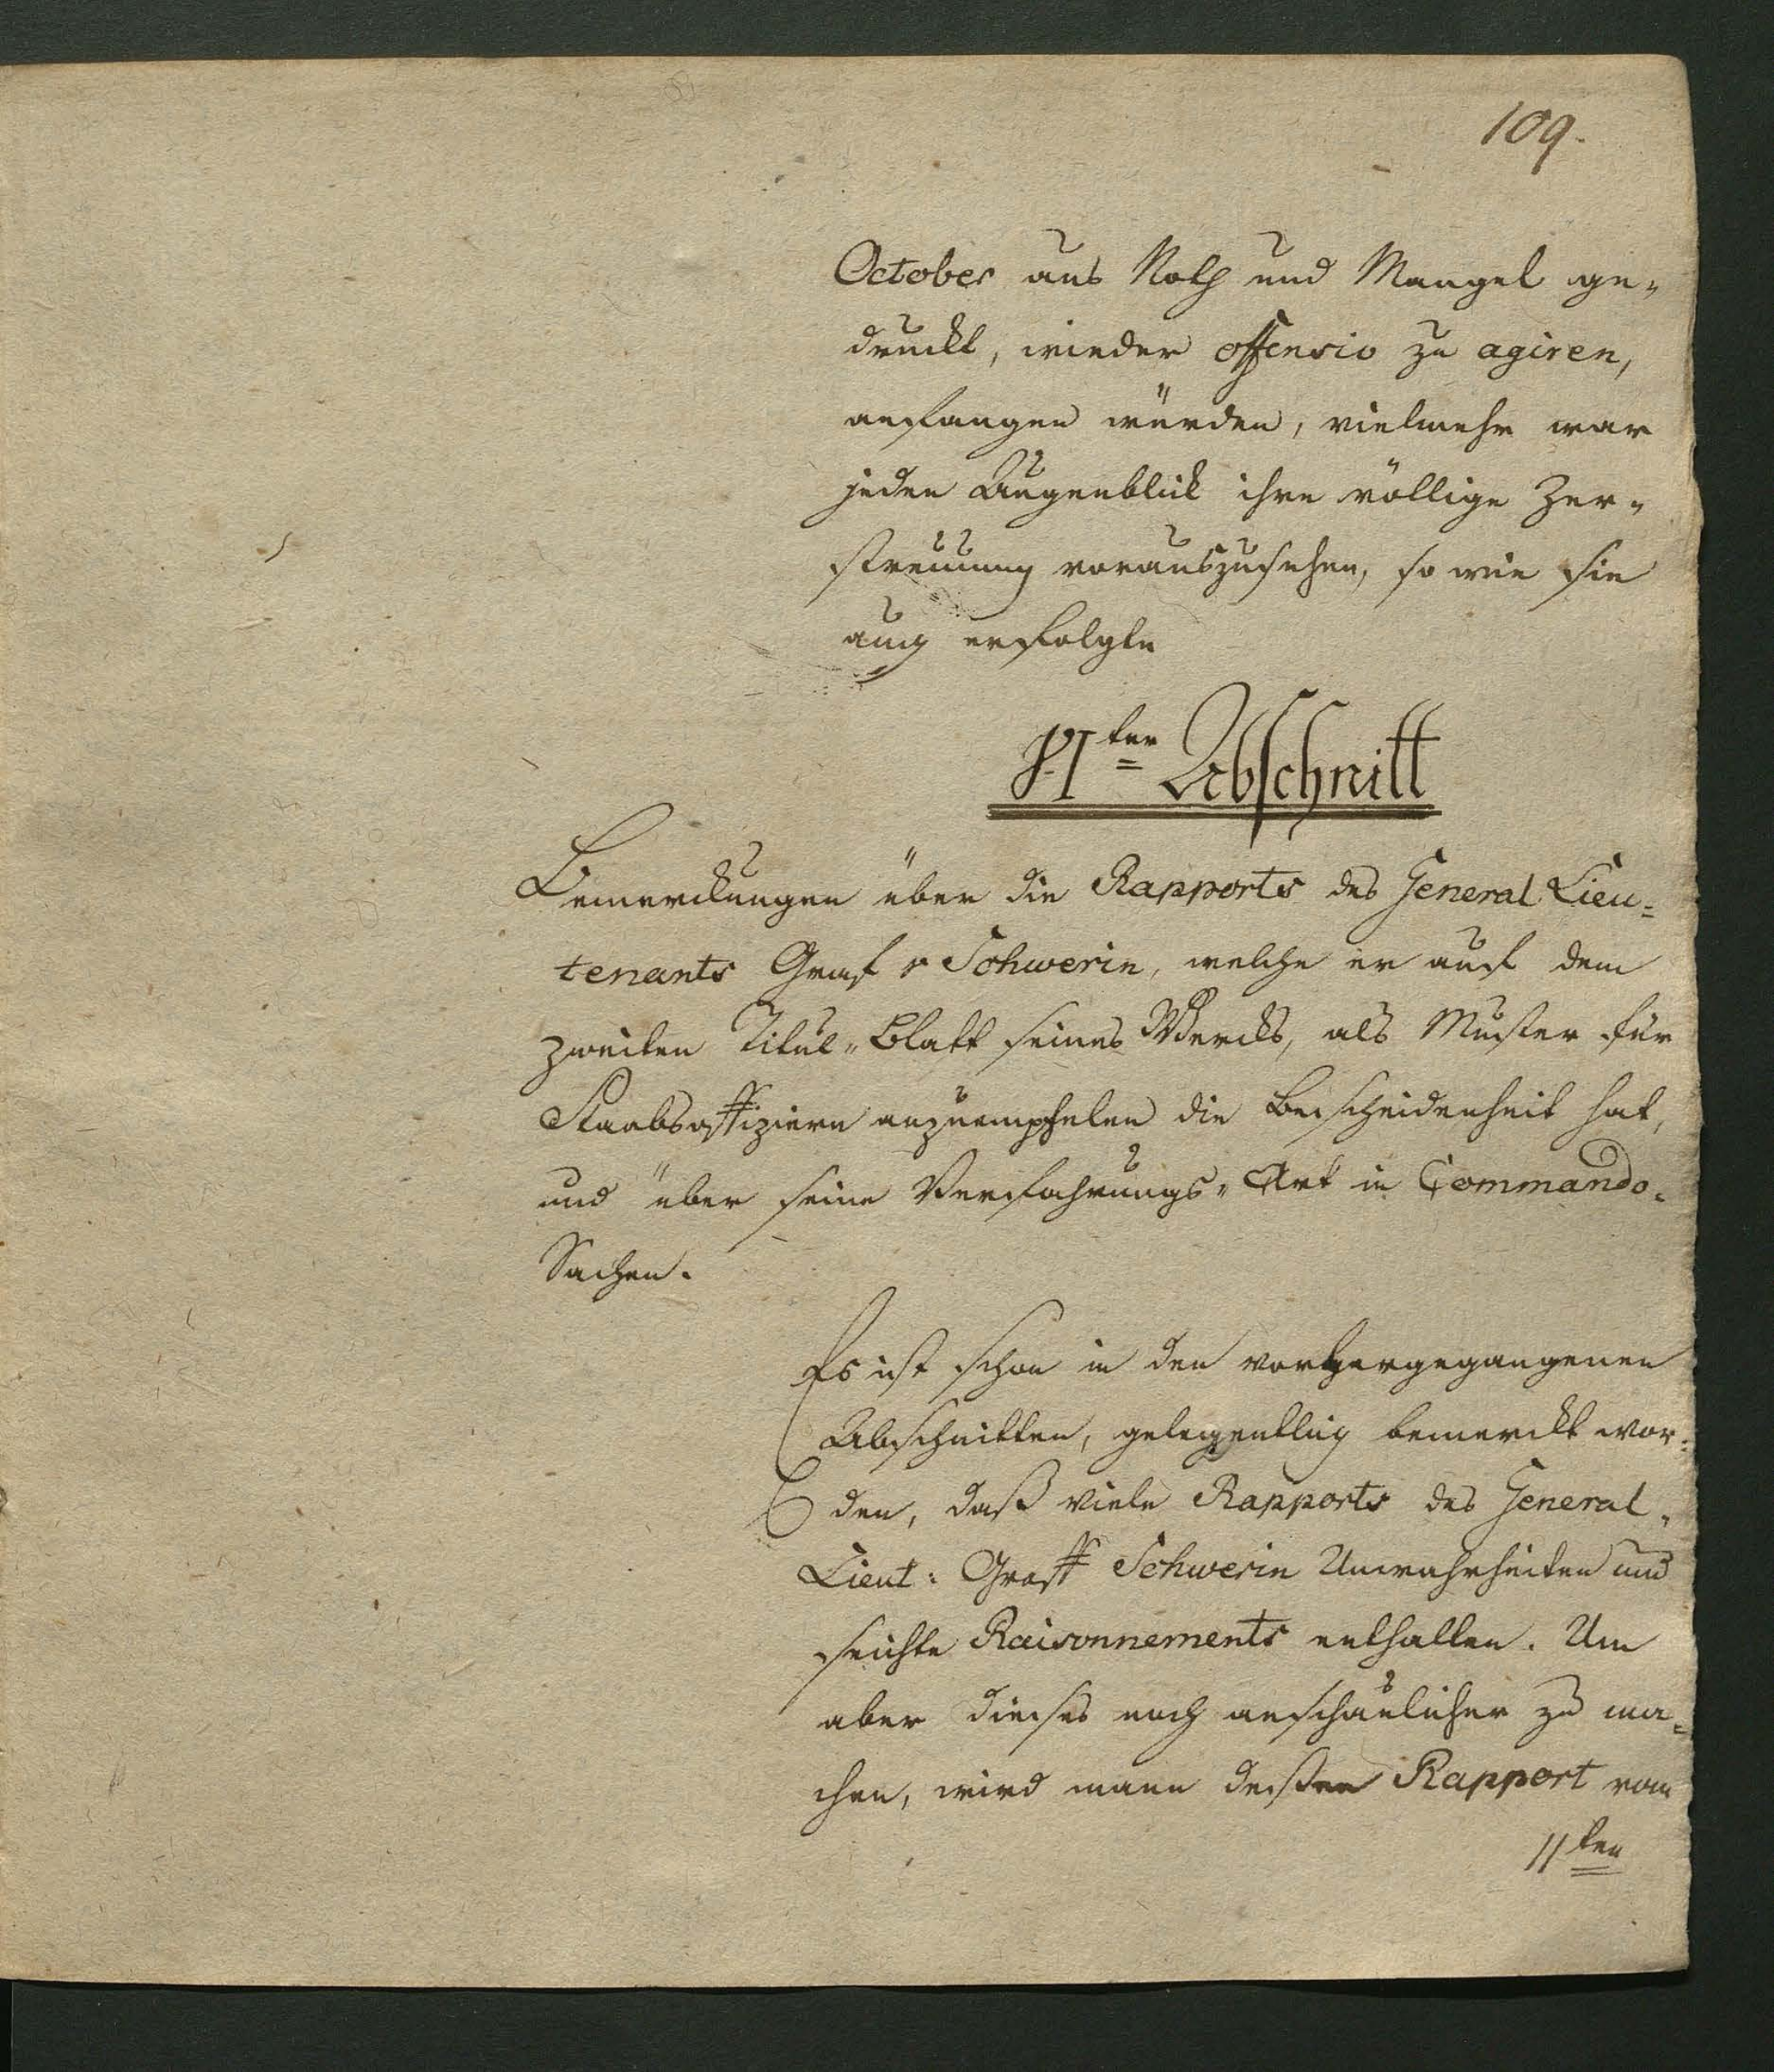 109.
October aus Noth und Mangel ge-
druckt, wieder offensiv zu agiren,
anfangen würden, vielmehr war
jeden Augenblick ihre völlige Zer-
streuung vorauszusehen, so wie sie
auch erfolgte
VI ter Abschnitt
Bemerckungen über die Rapports des General Lieu-
tenants Graf v Schwerin, welche er auf dem
zweiten Titul-Blatt seines Wercks, als Muster für
Staabsoffiziere anzuempfelen die Bescheidenheit hat,
und über seine Verfahrungs-Art in Commando-
Sachen.
Es ist schon in den vorhergegangenen
Abschnitten, gelegentlich bemerckt wor-
den, daß viele Rapports des General-
Lieut: Graff Schwerin Unwahrheiten und
seichte Raisonnements enthalten. Um
aber dieses noch anschaulicher zu ma-
chen, wird mann dessen Rapport vom
11ten